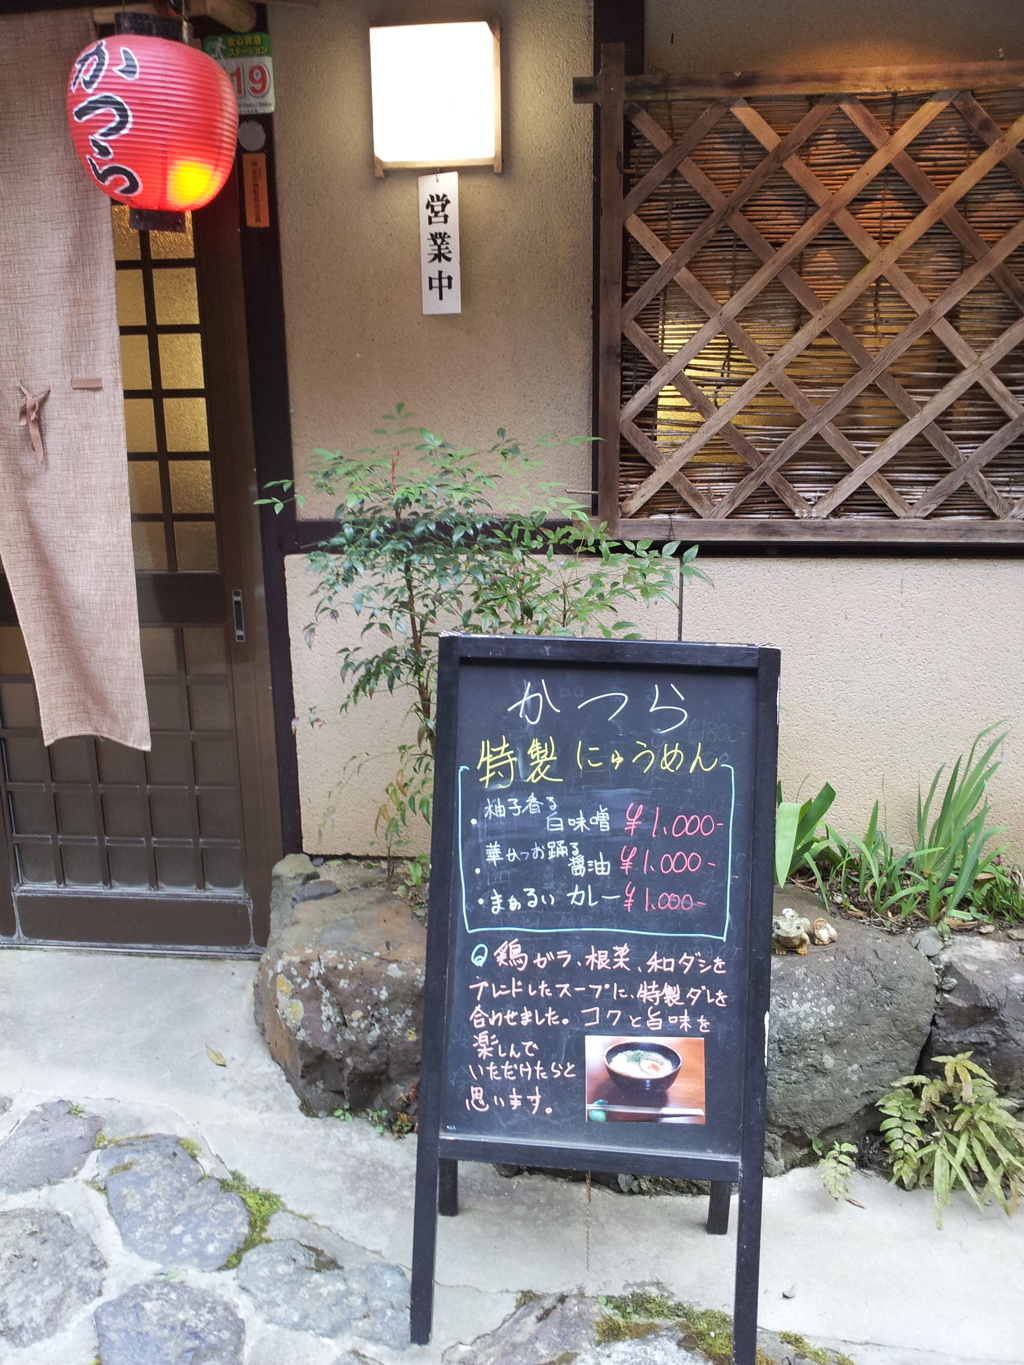 かつら
19
営業中
かつら
特製 にゅうめん
・柚子香る
白味噌 ¥1,000-
・華かつお踊る
醤油 ¥1,000-
・まぁるい カレー ¥1,000-
鶏ガラ、根菜、和ダシを
ブレンドしたスープに、特製ダレを
合わせました。コクと旨味を
楽しんで
いただけたらと
思います。